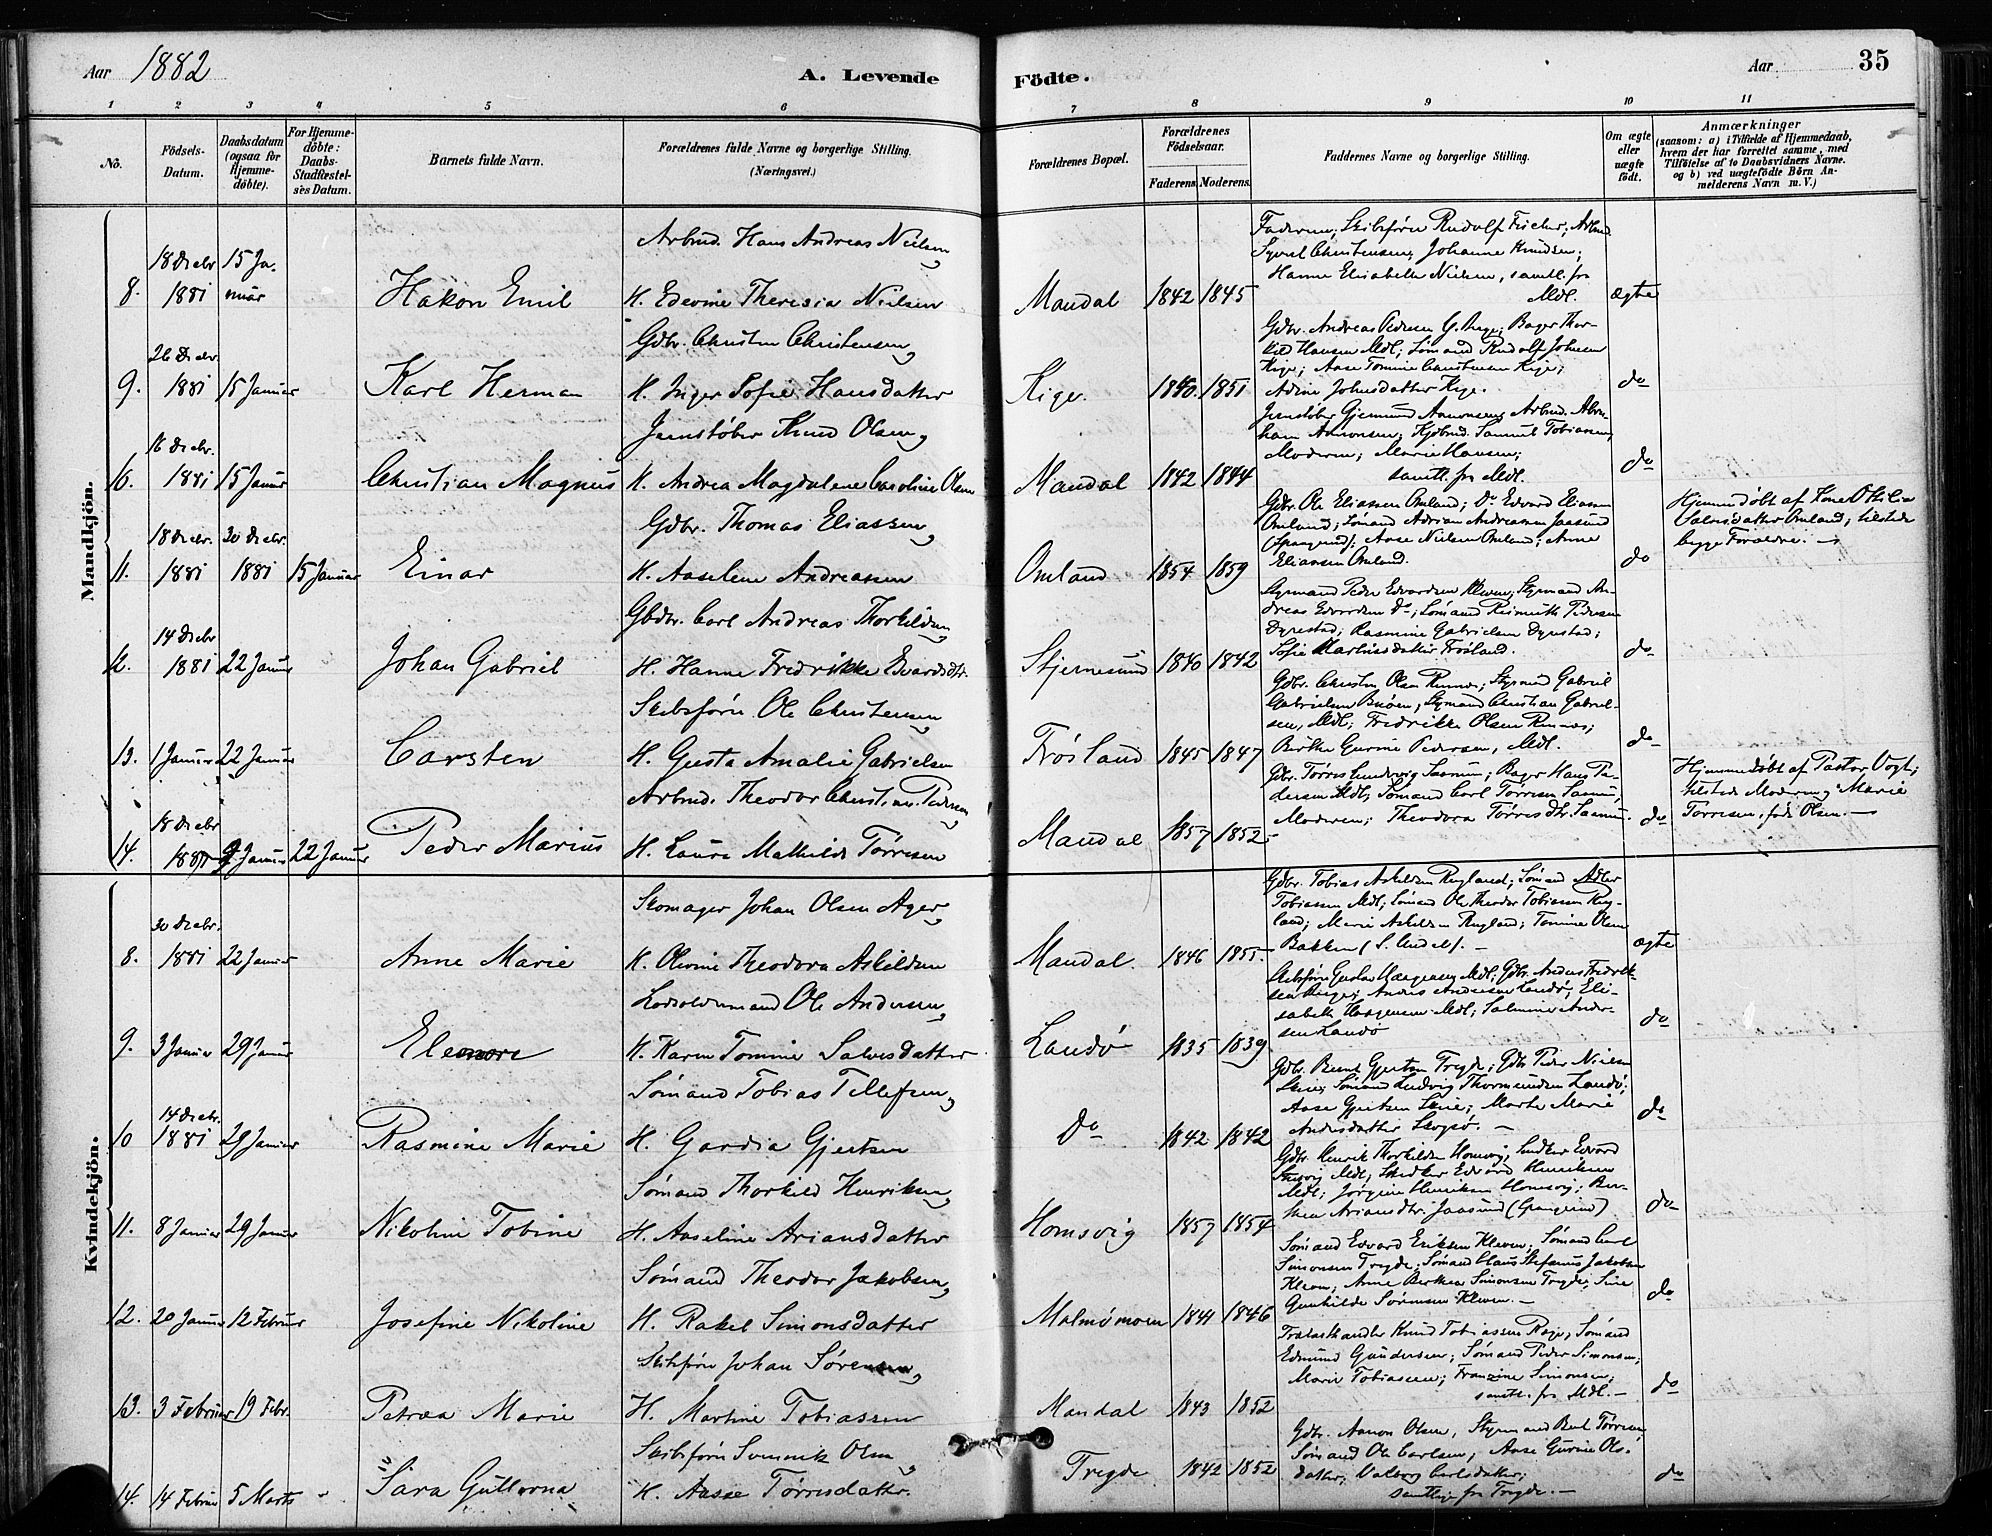 Aar 1882
A. Levende
Födte.
Aar
35
1
2
3
4
5
6
7
8
9
10
11
No.
Födsels-
Datum.
Daabsdatum
(ogsaa for
Hjemme-
döbte).
For Hjemme-
döbte:
Daabs-
Stadfæstel-
ses Datum.
Barnets fulde Navn.
Forældrenes fulde Navne og borgerlige Stilling.
(Næringsvei.)
Forældrenes Bopæl.
Forældrenes
Födselsaar.
Faderens.
Moderens.
Faddernes Navne og borgerlige Stilling.
Om ægte
eller
uægte
födt.
Anmærkninger
(saasom: a) i Tilfælde af Hjemmedaab,
hvem der har forrettet samme, med
Tilföielse af to Daabsvidners Navne.
og b) ved uægtefödte Börn An-
melderens Navn m. V.)
Mandkjön.
8. 18 Decbr 1881 15 Januar
Hakon Emil
Arbmd. Hans Andreas Nielsen
H. Edevine Theresia Nielsen
Mandal 1842 1845
Faderen; Skibsfører Rudolf Fischer; Arbmd
Christensen; Johanne Knudsen;
Hanne Elisabeth Nielsen, samtl. fra
Mdl.
ægte
9. 26 Decbr. 1881 15 Januar
Karl Herman
Gdbr. Christen Christensen
H. Inger Sofie Hansdatter
Kige 1840 1851
Gdbr. Andreas Pedersen; Bager Thor-
kild Hansen Mdl; Sømand Rudolf Johnsen
Kige; Aase Tomine Christensen Kige;
Adine Johnsdatter Kige.
do
10. 16 Decbr. 1881 15 Januar
Christian Magnus
Jernstøber Knud Olsen
H. Andrea Magdalene Caroline Olsen
Mandal 1842 1844
Jernstøber Gjermund Aanonsen; Arbmd. Abra-
ham Aanonsen; Samuel Tobiassen,
Moderen; Marie Hansen;
samtl. fra Mdl.
do
11. 18 Decbr. 1881 30 Decbr. 1881 15 Januar
Einar
Gdbr. Thomas Eliassen
H. Aaselene Andreassen
Omland 1854 1859
Gdbr. Ole Eliassen Omland; Do Edvard Eliassen
Omland; Sømand Adrian Andreassen Jaasund
(Spangereid); Aase Nielsen Omland; Anne
Eliassen Omland.
do
Hjemmedøbt af Kone Othilie
Salvesdatter Omland; tilstede
begge Forældre. —
12. 14 Decbr 1881 22 Januar
Johan Gabriel
Gbdbr. Carl Andreas Thorkildsen
H. Hanne Fredrikke Evardsdtr.
Stjernesund 1840 1842
Styrmand Peder Edvardsen Kleven; Styrmand An-
dreas Edvardsen Do; Sømand Pedersen
Dyrestad; Rasmine Gabrielsen Dyrstad;
Sofie Martinsdatter Frøsland.
do
13. 1 Januar 22 Januar
Carsten
Skibsfører Ole Christensen
H. Gusta Amalie Gabrielsen
Frøsland 1845 1847
Gdbr. Christen Olsen; Styrmand Gabriel
Gabrielsen; Styrmand Christian Gabriel-
sen, Mdl; Fredrikke Olsen;
Berthe Gurine Pedersen, Mdl.
do
14. 18 Decbr 1881 2 Januar 22 Januar
Peder Marius
Arbmd. Theodor Christian Pedersen
H. Laura Mathilde Tørresen
Mandal 1857 1852
Gdbr. Tørres; Bager Hans Pe-
dersen Mdl; Sømand Carl Tørresen,
Moderen; Theodora Tørresdtr.
do
Hjemmedøbt af Pastor Vogt;
tilstede Moderen og Marie
Torresen, født Olsen. —
Kvindekjön.
8. 30 Decbr. 1881 22 Januar
Anne Marie
Skomager Johan Olsen Ager
H. Olevine Theodora Askildsen
Mandal. 1846 1855
Gdbr. Tobias Askildsen Rugland; Sømand Adler
Tobiassen Mdl; Sømand Ole Theodor Tobiassen Rug-
land; Marie Askildsen Rugland; Tomine Olsen
Bakken (S. Undal). —
ægte
9. 3 Januar 29 Januar
Elenore
Lodsoldermand Ole Andersen
H. Karen Tomine Salvesdatter
Landø 1835 1839
Skibsfører Gustav Mdl; Gdbr. Anders Fredrik-
sen; Anders Andersen Landø; Eli-
sabeth Mdl; Salmine Ander-
sen Landø
do
10 14 Decbr. 1881 29 Januar
Rasmine Marie
Sømand Tobias Tellefsen
H. Gardia Gjertsen
Do 1842 1842
Gdbr. Bernt Gjertsen Tregde; Gdbr Peder Nielsen
Sømand Ludvig Thormundsen Landø;
Aase Gjertsen; Marthe Marie
Andersdatter Skogsø. —
do
11. 8 Januar 29 Januar
Nikoline Tobine
Sømand Thorkild Henriksen
H. Aaseline Ariansdatter
Homsvig 1857 1854
Gdbr Henrik Thorkildsen Homsvig; Edvard
Mdl; Edvard Henriksen
Mdl; Jørgine Henriksen Homsvig; Ber-
thea Ariansdtr. Jaasund (Spangereid)
do
12. 20 Januar 12 Februar
Josefine Nikoline
Sømand Theodor Jakobsen
H. Rakel Simonsdatter
Malmømoen 1844 1846
Sømand Edvard Eriksen Kleven; Sømand Carl
Simonsen Tregde; Sømand Claus Stefanus Jakobsen
Kleven; Anne Berthea Simonsen Tregde;
Gunhilde Sørensen Kleven. —
do
13. 3 Februar 19 Febr.
Petrea Marie
Skibsfører Johan Sørensen
H. Martine Tobiassen
Mandal 1843 1852
Trælasthandler Knud Tobiassen; Sømand
Edmund Gundersen; Sømand Peder Simonsen;
Marie Tobiassen; Franzine Simonsen;
samtl. fra Mdl. —
do
14. 14 Februar 5 Marts
Sara Gullorna
Skibsfører Svennik Olsen
H. Aasse Tørresdatter.
Tregde 1842 1852
Gdbr. Aanon Olsen, Styrmand Bent Tørresen,
Sømand Ole Carlsen, Aase Gurine Ols-
datter; Valborg Carlsdatter;
samtlige fra Tregde. —
do